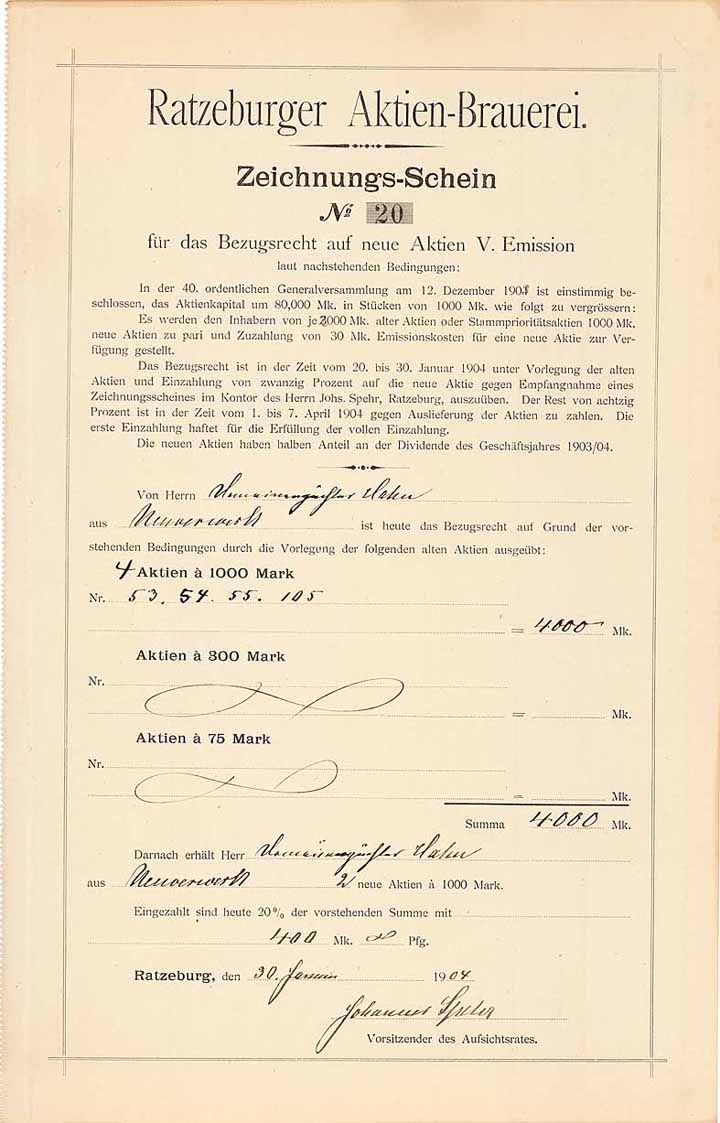 Ratzeburger Aktien-Brauerei.
Zeichnungs-Schein
No 20
für das Bezugsrecht auf neue Aktien V. Emission
laut nachstehenden Bedingungen:
In der 40. ordentlichen Generalversammlung am 12. Dezember 1903 ist einstimmig be-
schlossen, das Aktienkapital um 80,000 Mk. in Stücken von 1000 Mk. wie folgt zu vergrössern:
Es werden den Inhabern von je 2000 Mk. alter Aktien oder Stammprioritätsaktien 1000 Mk.
neue Aktien zu pari und Zuzahlung von 30 Mk. Emissionskosten für eine neue Aktie zur Ver-
fügung gestellt.
Das Bezugsrecht ist in der Zeit vom 20. bis 30. Januar 1904 unter Vorlegung der alten
Aktien und Einzahlung von zwanzig Prozent auf die neue Aktie gegen Empfangnahme eines
Zeichnungsscheines im Kontor des Herrn Johs. Spehr, Ratzeburg, auszuüben. Der Rest von achtzig
Prozent ist in der Zeit vom 1. bis 7. April 1904 gegen Auslieferung der Aktien zu zahlen. Die
erste Einzahlung haftet für die Erfüllung der vollen Einzahlung.
Die neuen Aktien haben halben Anteil an der Dividende des Geschäftsjahres 1903/04.
Von Herrn Domainenpächter Hahn
aus Neuvorwerk ist heute das Bezugsrecht auf Grund der vor-
stehenden Bedingungen durch die Vorlegung der folgenden alten Aktien ausgeübt:
4 Aktien à 1000 Mark
Nr. 53. 54. 55. 105
= 4000 Mk.
Aktien à 300 Mark
Nr.
= Mk.
Aktien à 75 Mark
Nr.
= Mk.
Summa 4000 Mk.
Darnach erhält Herr Domainenpächter Hahn
aus Neuvorwerk 2 neue Aktien à 1000 Mark.
Eingezahlt sind heute 20% der vorstehenden Summe mit
400 Mk. Pfg.
Ratzeburg, den 30. Januar 1904
Johannes Spehr
Vorsitzender des Aufsichtsrates.